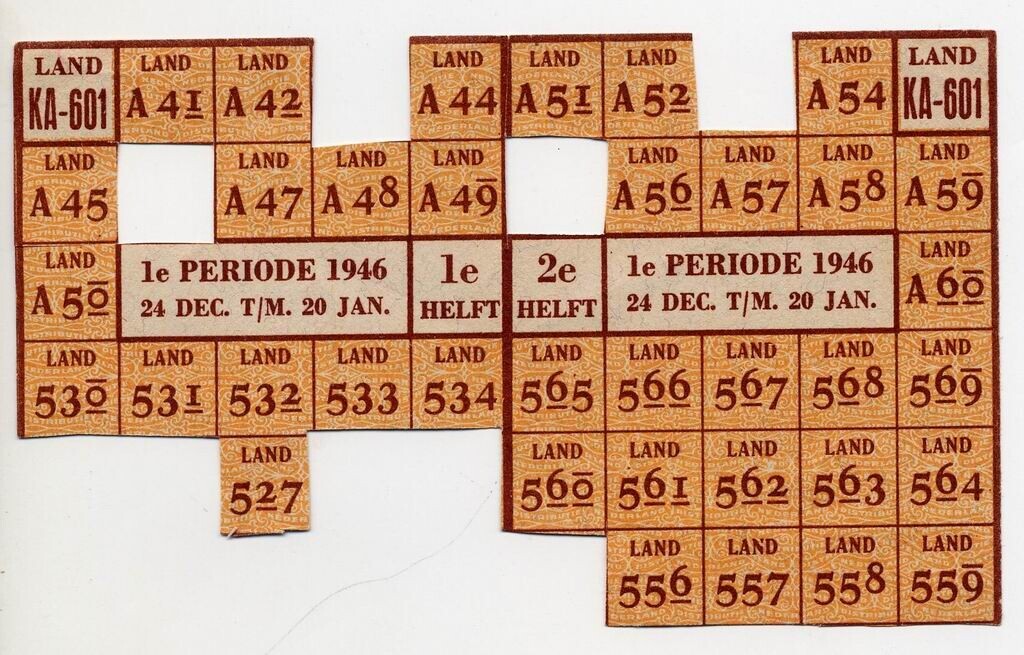 LAND LAND LAND LAND LAND LAND LAND LAND
KA-601 A 41 A 42 A 44 A 51 A 52 A 54 KA-601
LAND LAND LAND LAND LAND LAND LAND LAND
A 45 A 47 A 48 A 49 A 56 A 57 A 58 A 59
LAND 1e PERIODE 1946 1e 2e 1e PERIODE 1946 LAND
A 50 24 DEC. T/M. 20 JAN. HELFT HELFT 24 DEC. T/M. 20 JAN. A 60
LAND LAND LAND LAND LAND LAND LAND LAND LAND LAND
530 531 532 533 534 565 566 567 568 569
LAND LAND LAND LAND LAND LAND
527 560 561 562 563 564
LAND LAND LAND LAND
556 557 558 559